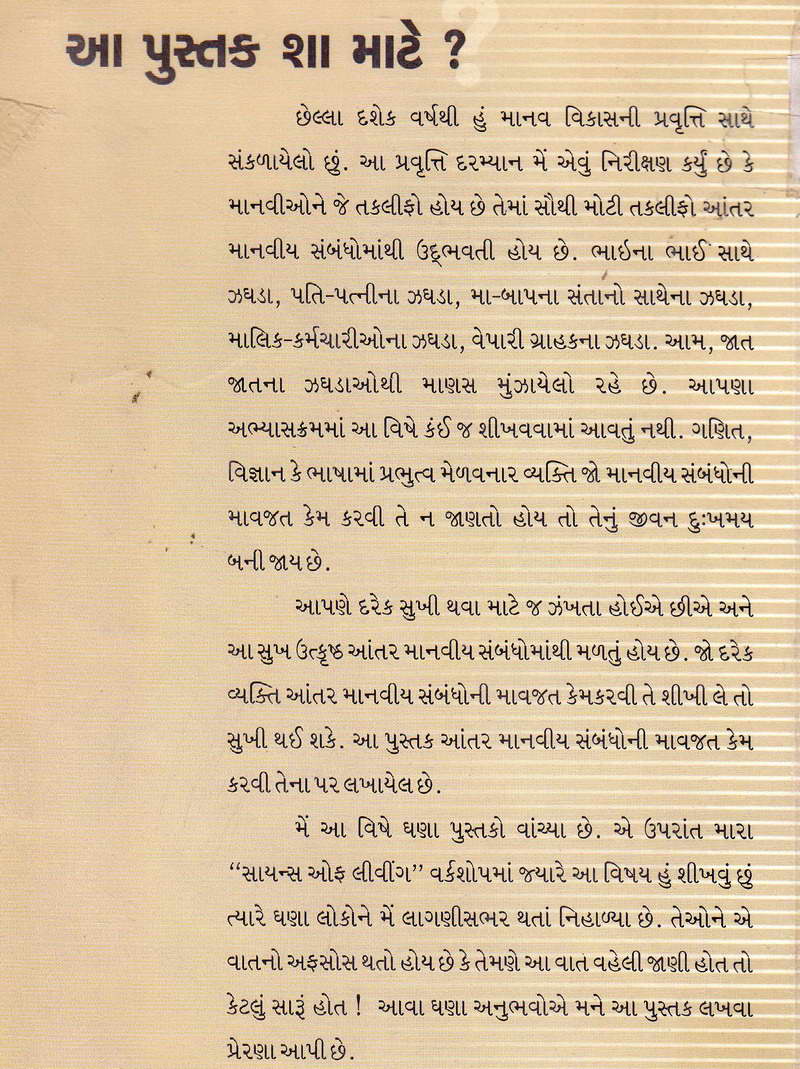 આ પુસ્તક શા માટે ?
છેલ્લા દશેક વર્ષથી હું માનવ વિકાસની પ્રવૃત્તિ સાથે
સંકળાયેલો છું. આ પ્રવૃત્તિ દરમ્યાન મેં એવું નિરીક્ષણ કર્યું છે કે
માનવીઓને જે તકલીફો હોય છે તેમાં સૌથી મોટી તકલીફો આંતર
માનવીય સંબંધોમાંથી ઉદ્‌ભવતી હોય છે. ભાઇના ભાઈ સાથે
ઝઘડા, પતિ-પત્નીના ઝઘડા, મા-બાપના સંતાનો સાથેના ઝઘડા,
માલિક-કર્મચારીઓના ઝઘડા, વેપારી ગ્રાહકના ઝઘડા. આમ, જાત
જાતના ઝઘડાઓથી માણસ મુંઝાયેલો રહે છે. આપણા
અભ્યાસક્રમમાં આ વિષે કંઈ જ શીખવવામાં આવતું નથી. ગણિત,
વિજ્ઞાન કે ભાષામાં પ્રભુત્વ મેળવનાર વ્યક્તિ જો માનવીય સંબંધોની
માવજત કેમ કરવી તે ન જાણતો હોય તો તેનું જીવન દુઃખમય
બની જાય છે.
આપણે દરેક સુખી થવા માટે જ ઝંખતા હોઈએ છીએ અને
આ સુખ ઉત્કૃષ્ઠ આંતર માનવીય સંબંધોમાંથી મળતું હોય છે. જો દરેક
વ્યક્તિ આંતર માનવીય સંબંધોની માવજત કેમકરવી તે શીખી લે તો
સુખી થઈ શકે. આ પુસ્તક આંતર માનવીય સંબંધોની માવજત કેમ
કરવી તેના પર લખાયેલ છે.
મેં આ વિષે ઘણા પુસ્તકો વાંચ્યા છે. એ ઉપરાંત મારા
“સાયન્સ ઓફ લીવીંગ” વર્કશોપમાં જ્યારે આ વિષય હું શીખવું છું
ત્યારે ઘણા લોકોને મેં લાગણીસભર થતાં નિહાળ્યા છે. તેઓને એ
વાતનો અફસોસ થતો હોય છે કે તેમણે આ વાત વહેલી જાણી હોત તો
કેટલું સારૂં હોત ! આવા ઘણા અનુભવોએ મને આ પુસ્તક લખવા
પ્રેરણા આપી છે.